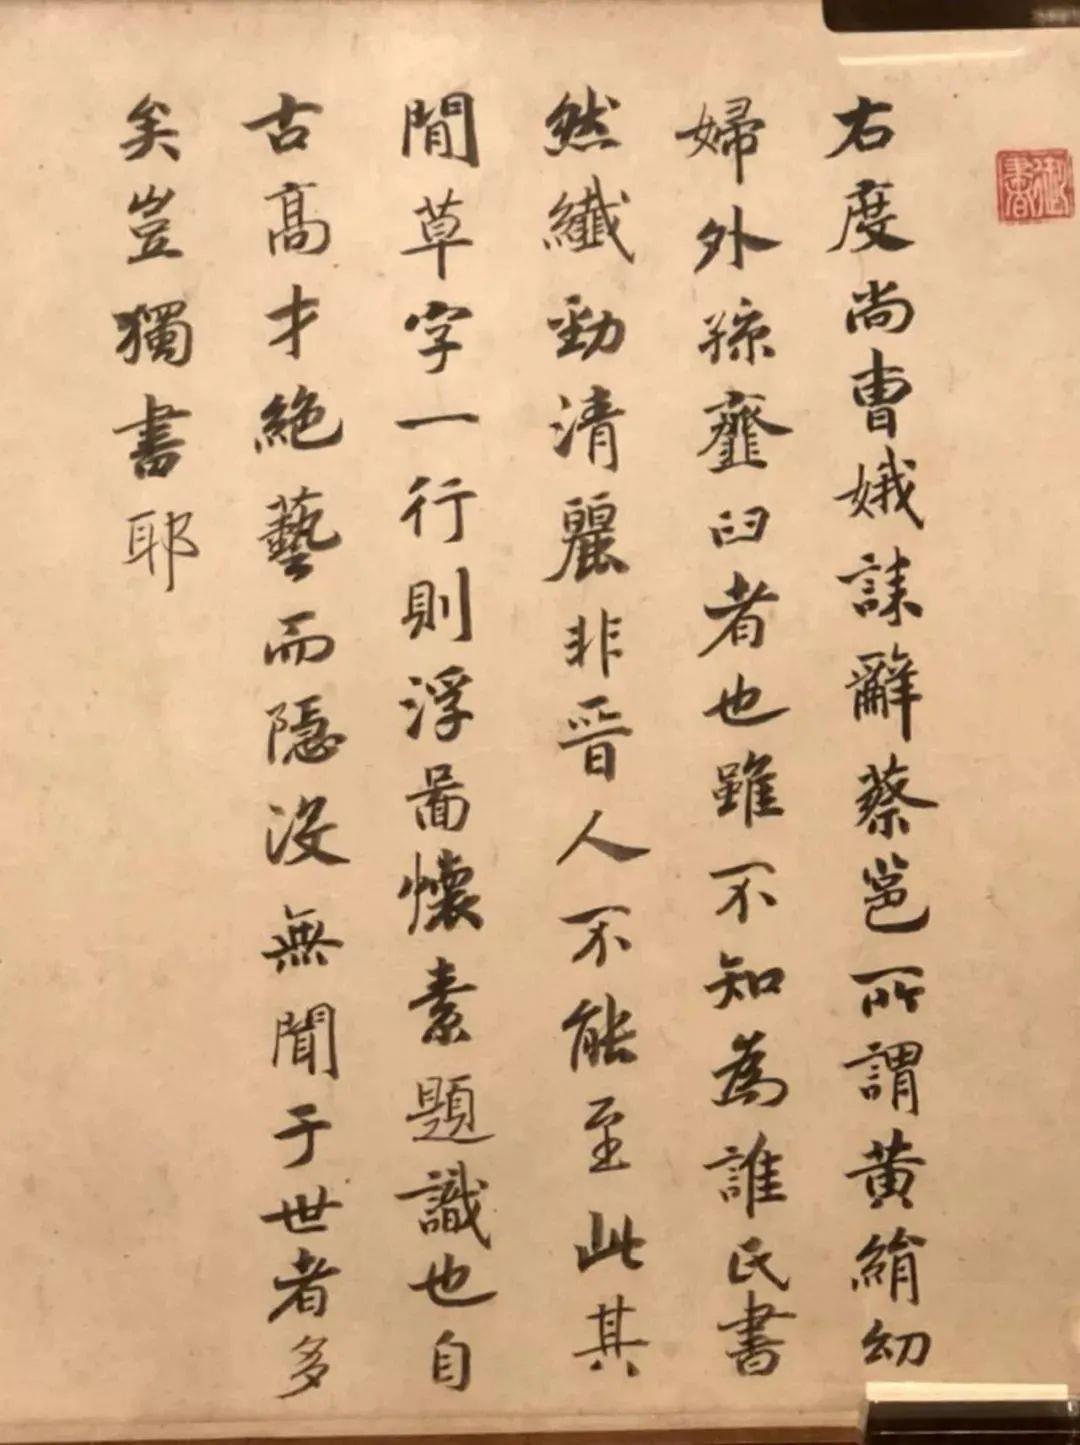 右度尚曹娥誄辭蔡邕所謂黄絹幼
婦外孫虀臼者也雖不知為誰氏書
然纖勁清麗非晉人不能至此其
閒草字一行則浮圖懷素題識也自
古高才絶藝而隱没無聞于世者多
矣豈獨書耶
御書